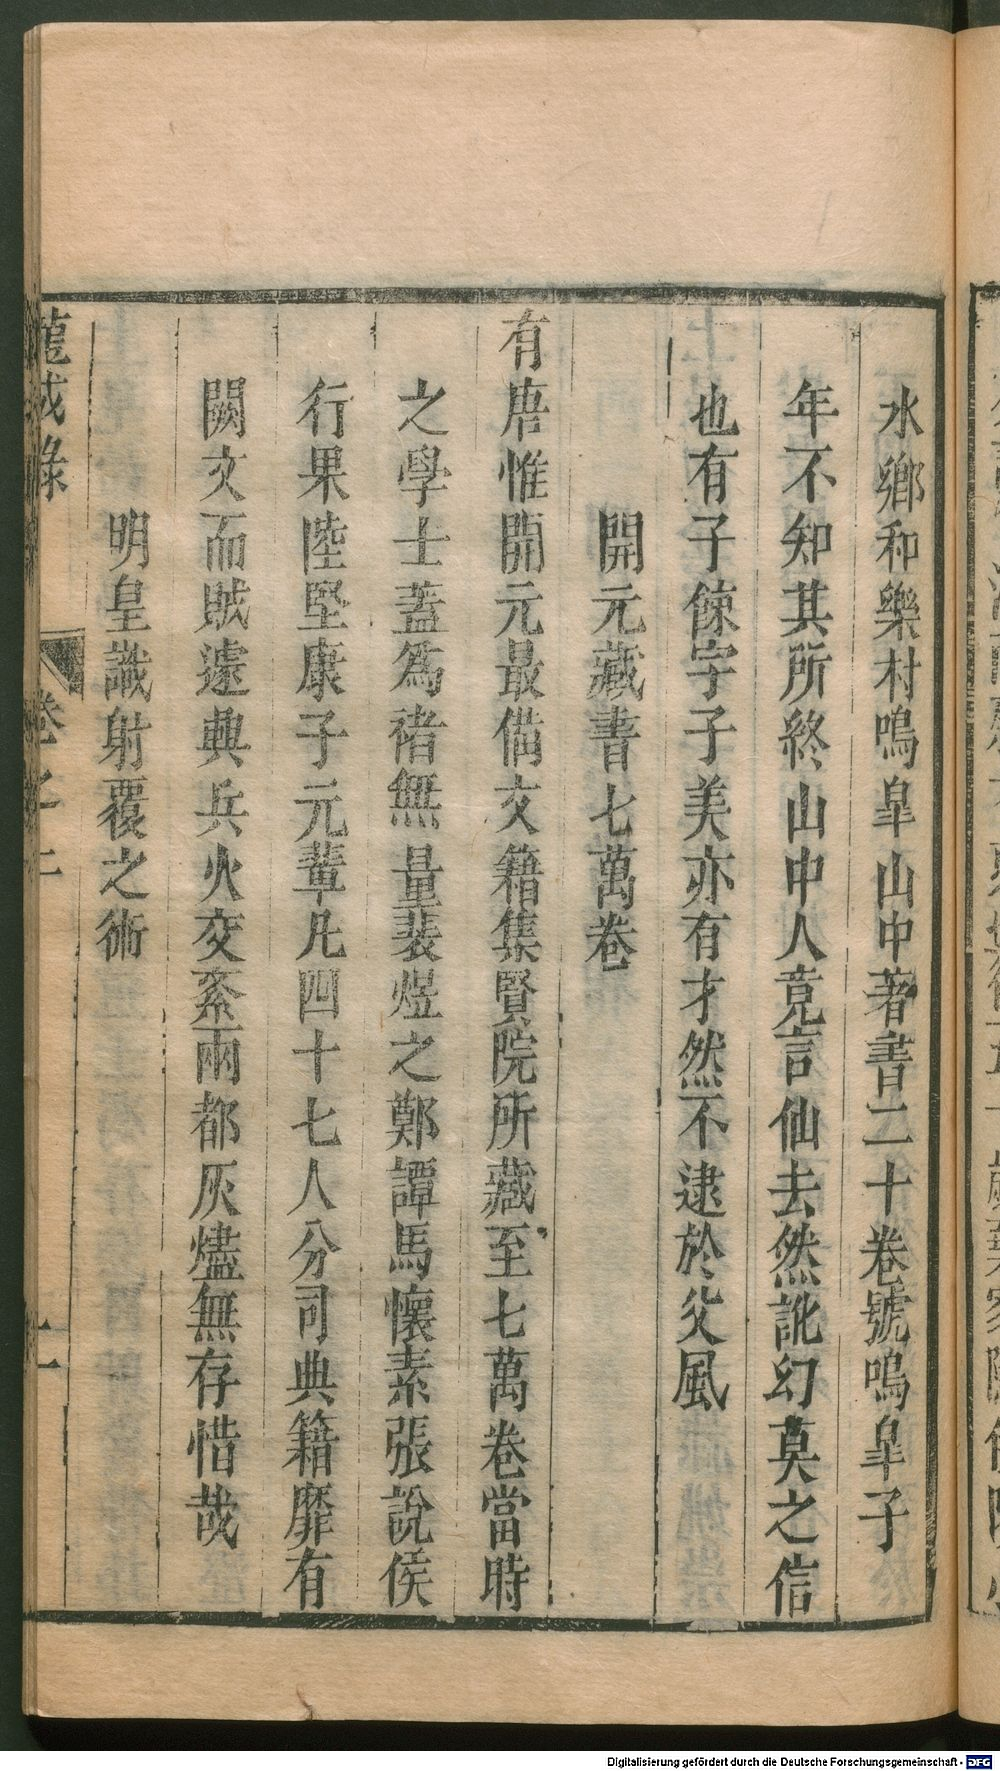 水鄉和樂村鳴皐山中著書二十卷號鳴皐子
年不知其所終山中人竟言仙去然訛幻莫之信
也有子餗字子美亦有才然不逮於父風
開元藏書七萬卷
有唐惟開元最備文籍集賢院所藏至七萬卷當時
之學士蓋為禇無量裴煜之鄭譚馬懷素張說侯
行果陸堅康子元輩凡四十七人分司典籍靡有
闕文而賊遽興兵火交紊兩都灰燼無存惜哉
明皇識射覆之術
龍城錄
卷之上
二
Digitalisierung gefördert durch die Deutsche Forschungsgemeinschaft - DFG